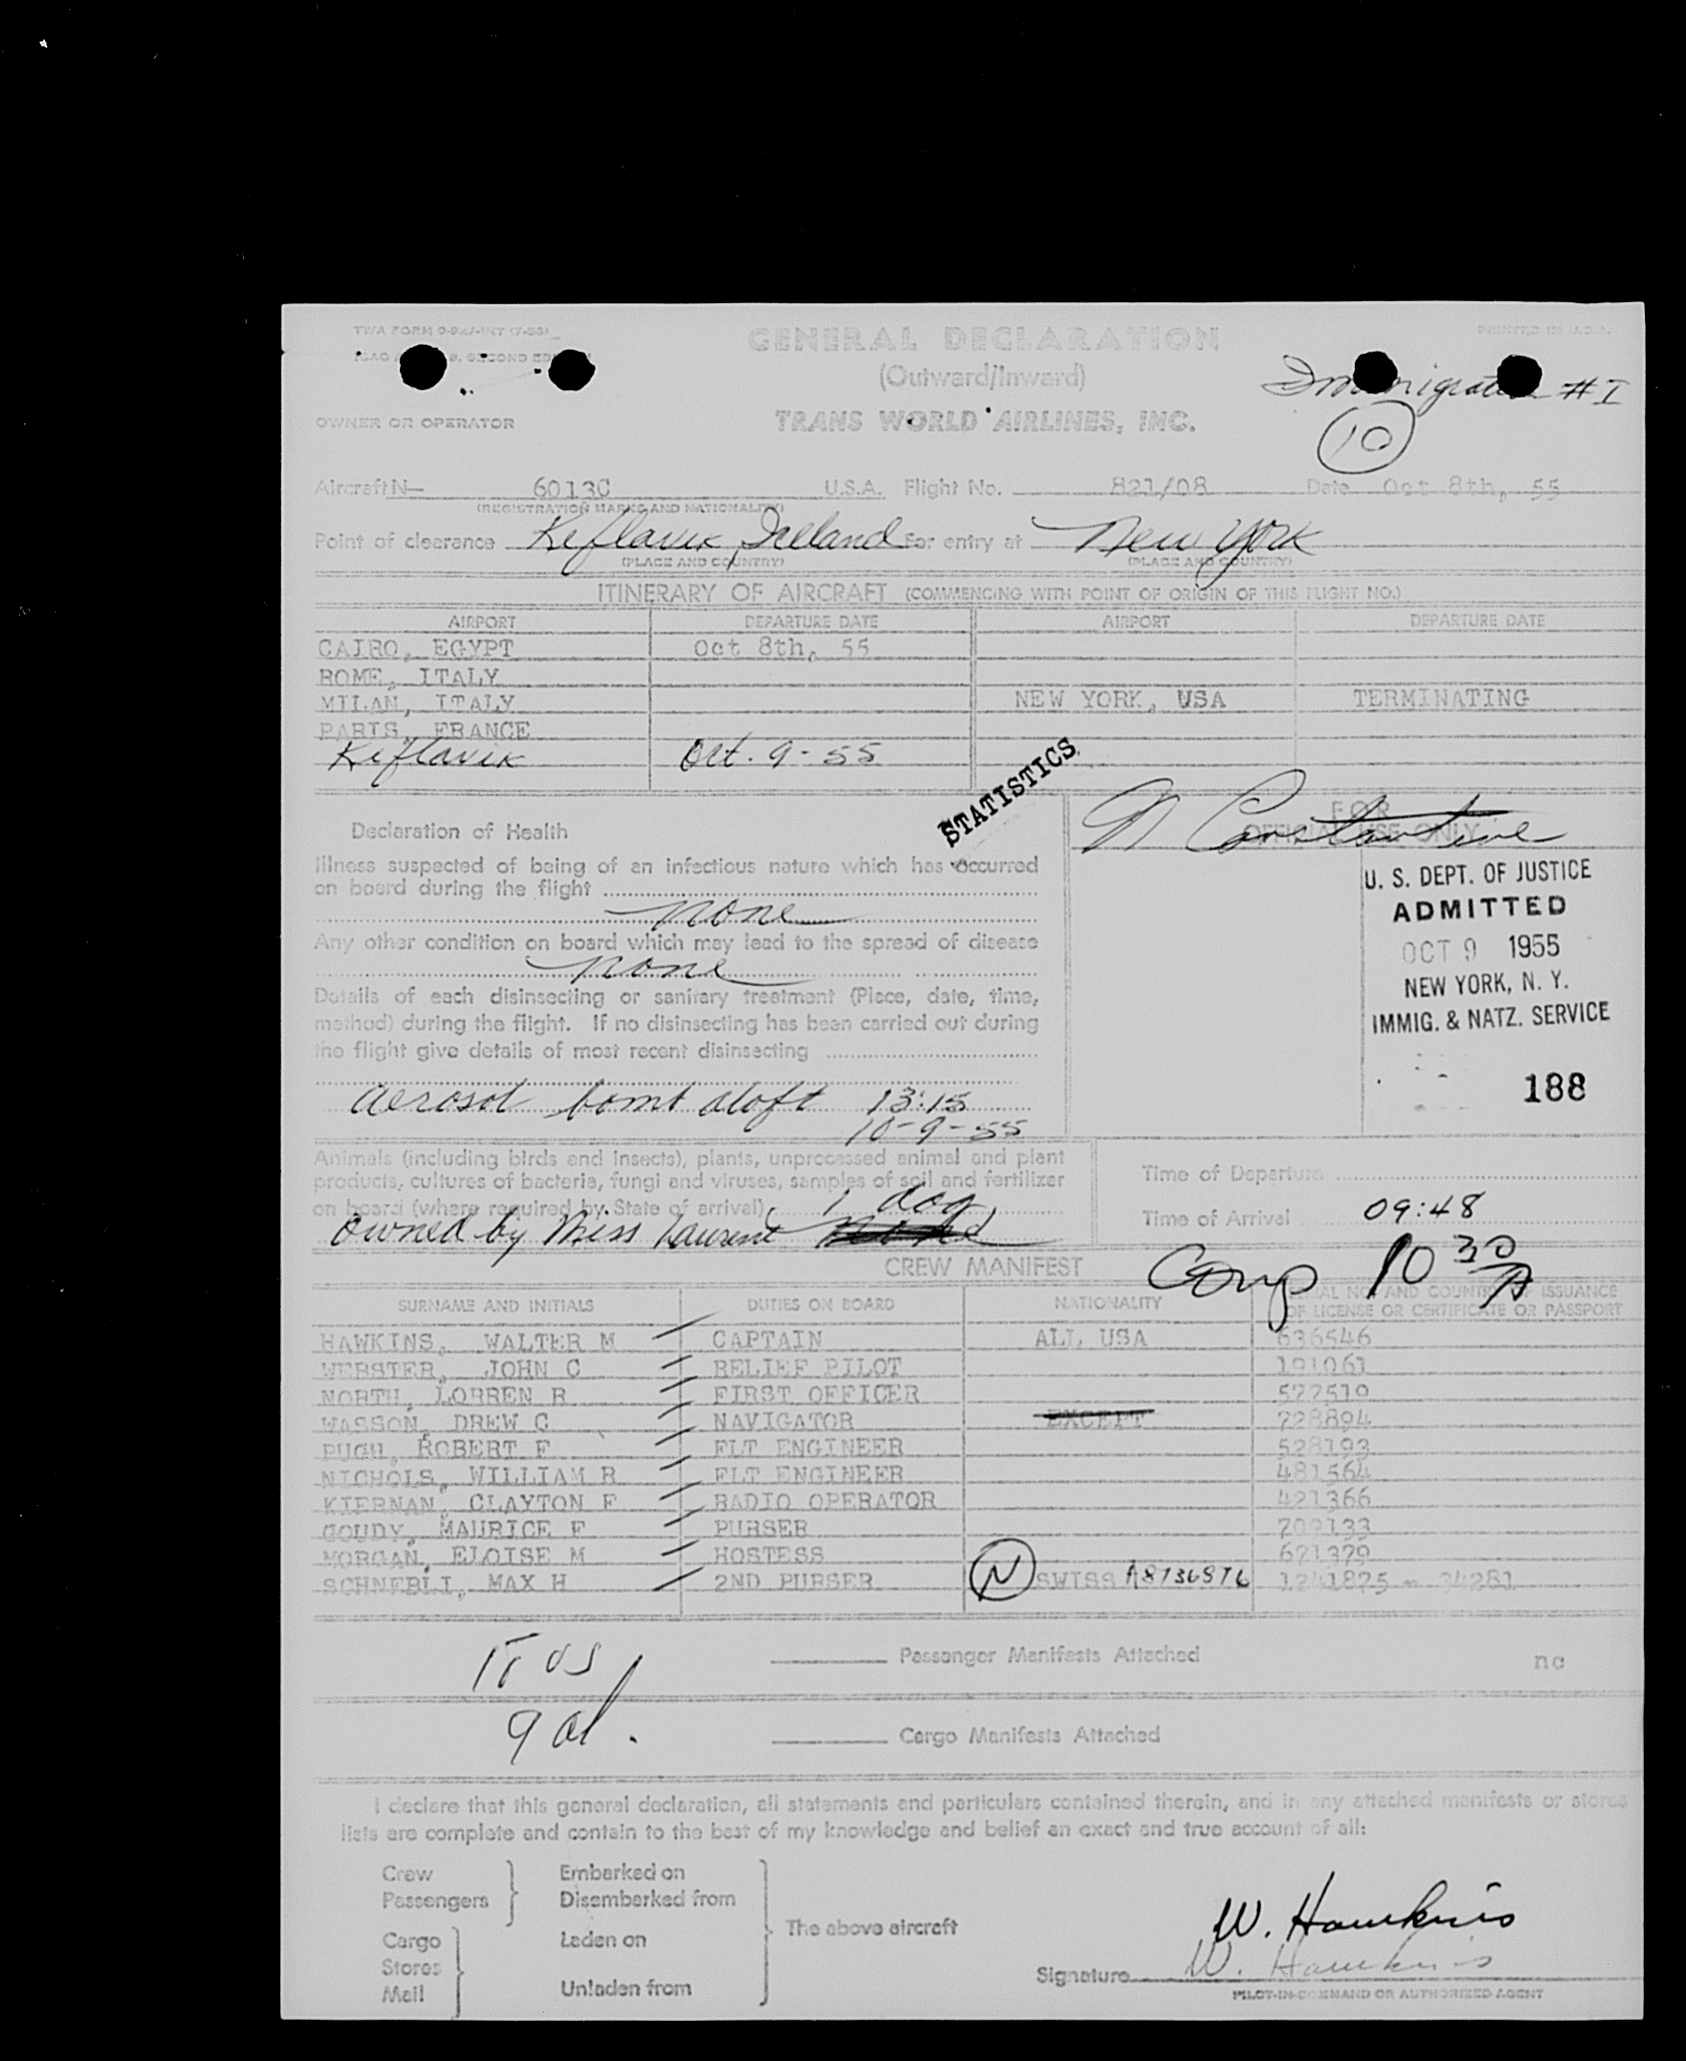 TWA FORM
PRINTED IN U.S.A.
GENERAL DECLARATION
(Outward/Inward)
Immigration #I
OWNER OR OPERATOR
TRANS WORLD AIRLINES, INC.
10
Aircraft N— 6013C U.S.A. Flight No. 821/08 Date Oct 8th, 55
(REGISTRATION MARKS AND NATIONALITY)
Point of clearance Keflavik, Iceland For entry at New York
(PLACE AND COUNTRY) (PLACE AND COUNTRY)
ITINERARY OF AIRCRAFT (COMMENCING WITH POINT OF ORIGIN OF THIS FLIGHT NO.)
AIRPORT DEPARTURE DATE AIRPORT DEPARTURE DATE
CAIRO, EGYPT Oct 8th, 55
ROME, ITALY
MILAN, ITALY NEW YORK, USA TERMINATING
PARIS, FRANCE
Keflavik Oct. 9-55
STATISTICS
Constantine
FOR
OFFICIAL USE ONLY
Declaration of Health
Illness suspected of being of an infectious nature which has occurred
on board during the flight
none
Any other condition on board which may lead to the spread of disease
none
Details of each disinsecting or sanitary treatment (Place, date, time,
method) during the flight. If no disinsecting has been carried out during
the flight give details of most recent disinsecting
Aerosol bomb aloft 13:15
10-9-55
U. S. DEPT. OF JUSTICE
ADMITTED
OCT 9 1955
NEW YORK, N. Y.
IMMIG. & NATZ. SERVICE
188
Animals (including birds and insects), plants, unprocessed animal and plant
products, cultures of bacteria, fungi and viruses, samples of soil and fertilizer
on board (where required by State of arrival) 1 dog
owned by Miss Laurent
Time of Departure
Time of Arrival 09:48
CREW MANIFEST
Comp 10 30 A
SURNAME AND INITIALS DUTIES ON BOARD NATIONALITY SERIAL NO. AND COUNTRY OF ISSUANCE
OF LICENSE OR CERTIFICATE OR PASSPORT
HAWKINS, WALTER M CAPTAIN ALL USA 636546
WEBSTER, JOHN C RELIEF PILOT 191061
NORTH, LORREN R FIRST OFFICER 522519
WASSON, DREW C NAVIGATOR EXCEPT 728894
PUGH, ROBERT F FLT ENGINEER 528193
NICHOLS, WILLIAM R FLT ENGINEER 481564
KIERNAN, CLAYTON F RADIO OPERATOR 421366
GOUDY, MAURICE F PURSER 709133
MORGAN, ELOISE M HOSTESS 671379
SCHNEBLI, MAX H 2ND PURSER N SWISS A8736876 1241875 - 34281
Passenger Manifests Attached nc
9 al.
Cargo Manifests Attached
I declare that this general declaration, all statements and particulars contained therein, and in any attached manifests or stores
lists are complete and contain to the best of my knowledge and belief an exact and true account of all:
Crew Embarked on
Passengers Disembarked from
The above aircraft
Cargo Laden on
Stores
Mail Unladen from
W. Hawkins
Signature W. Hawkins
PILOT-IN-COMMAND OR AUTHORIZED AGENT